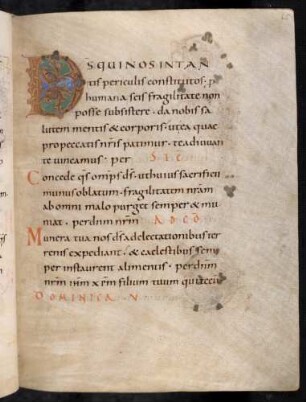 DS QUI NOS IN TAN
tis periculis constitutos· p
humana scis fragilitate non
posse subsistere· da nobis sa
lutem mentis & corporis· ut ea quae
pro peccatis nris patimur· te adiuuan
te uincamus· per SEC
Concede qs omps ds· ut huius sacrificii
munus oblatum· fragilitatem nram
ab omni malo purget semper & mu
niat· per dnm nrm AD CO
Munera tua nos ds a delectationibus ter
renis expediant· & caelestibus sem
per instaurent alimentis· per dnm
nrm ihm xpm filium tuum qui tecu
DOMINICA